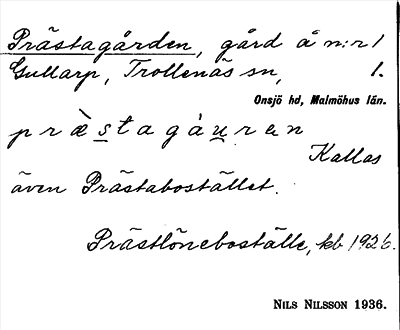 Prästagården, gård å n:r 1
Gullarp, Trollenäs sn, 1.
Onsjö hd, Malmöhus län.
præ̀s̲tagáu̲ren
Kallas
även Prästabostället.
Prästlöneboställe, kb 1926.
NILS NILSSON 1936.